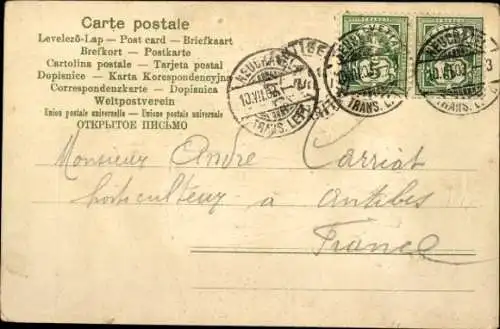 Carte postale
Levelező-Lap — Post card — Briefkaart
Brefkort — Postkarte
Cartolina postale — Tarjeta postal
Dopisnice — Karta Korespondencyjna
Correspondenzkarte — Dopisnica
Weltpostverein
Union postale universelle — Unione postale universale
ОТКРЫТОЕ ПИСЬМО
NEUCHATEL
TRANS. LETT.
NEUCHATEL
TRANS. L
NEUCHATEL
TRANS. L
Monsieur Andre Carriat
horticulteur à Antibes
France